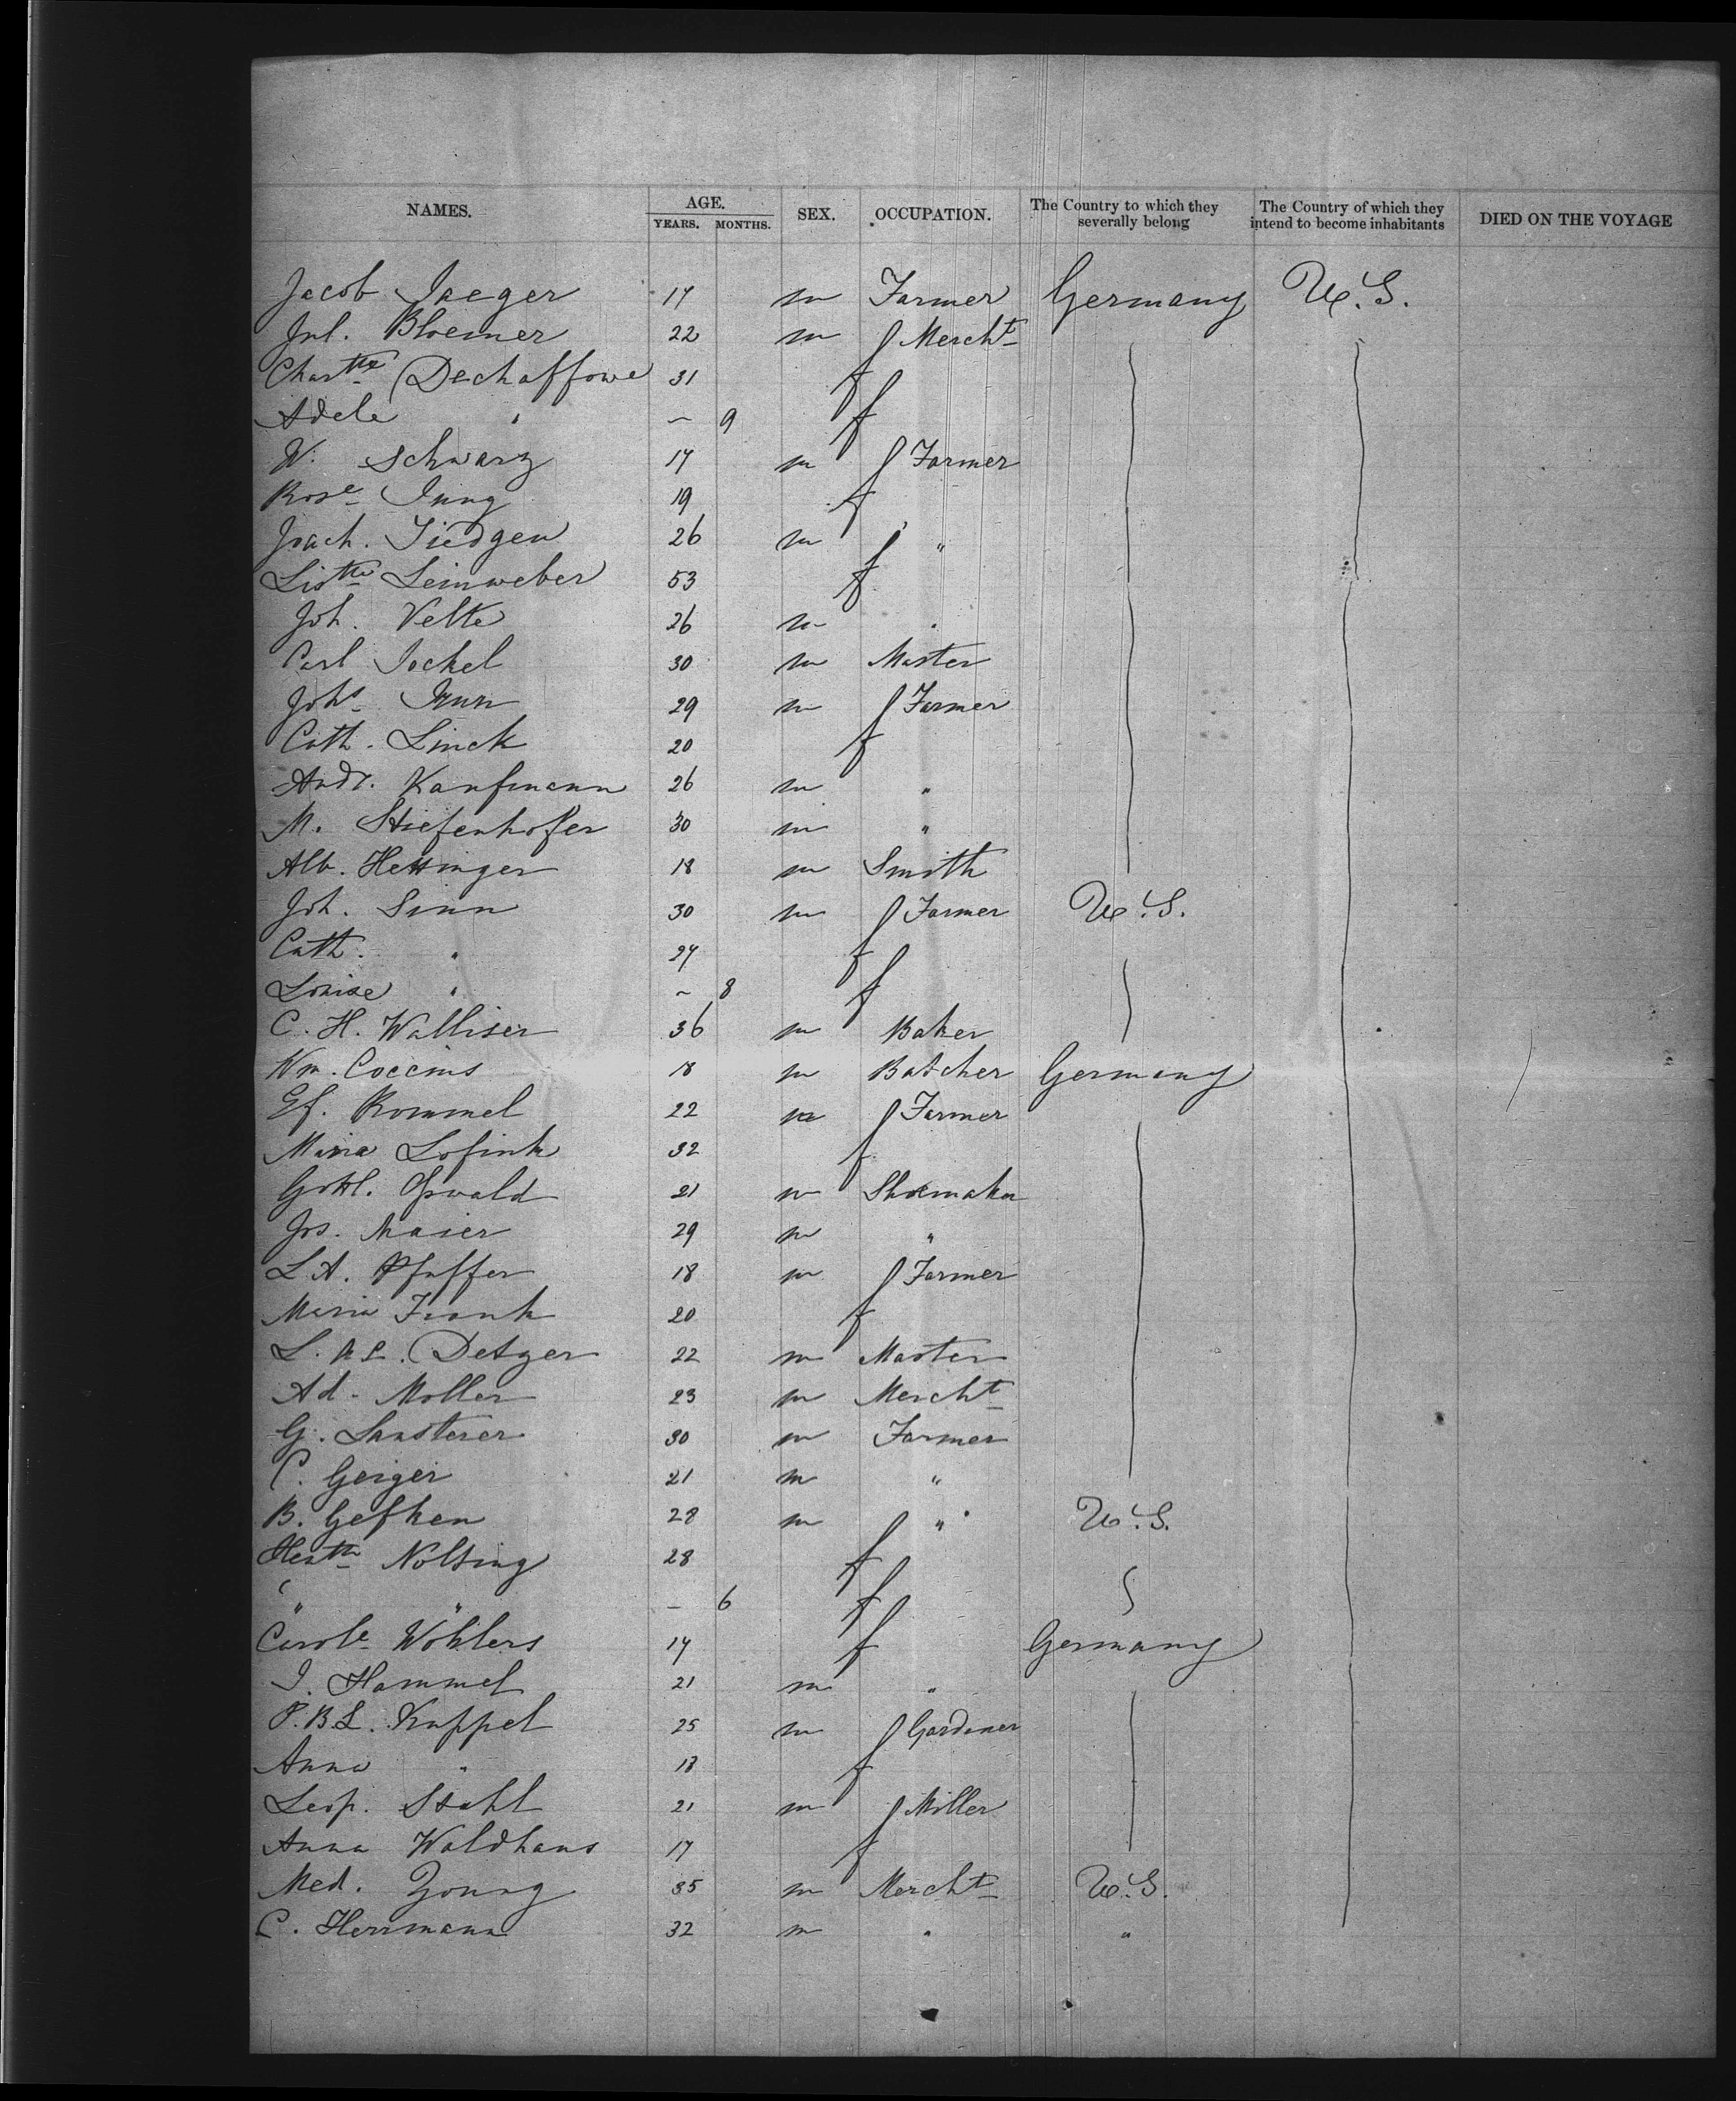 NAMES. AGE. YEARS. MONTHS. SEX. OCCUPATION. The Country to which they severally belong The Country of which they intend to become inhabitants DIED ON THE VOYAGE
Jacob Jaeger 17 m Farmer Germany U.S.
Jul. Bloemer 22 m Mercht
Chartte 31 f
Adele " — 9 f
W. Schwarz 17 m Farmer
Rose Jung 19 f
Joach. Tiedgen 26 m "
Listte Leinweber 53 f
Joh. Velte 26 m "
Carl Jockel 30 m Master
Johs 29 m Farmer
Cath. Linck 20 f
Andr. Kaufmann 26 m "
M. Stiefenhofer 30 m "
Alb. Hettinger 18 m Smith
Joh. Sinn 30 m Farmer U.S.
Cath. " 27 f
Louise " — 8 f
C. H. Walliser 36 m Baker
Wm. Coccius 18 m Butcher Germany
Ef. Rommel 22 m Farmer
Maria Lofink 32 f
Gottl. Oswald 21 m Shoemaker
Jos. Maier 29 m "
L.A. Pfuffer 18 m Farmer
Maria Frank 20 f
L. Detzer 22 m Master
Ad. Moller 23 m Mercht
G. Sansterer 30 m Farmer
C. Geiger 21 m "
B. Gefken 28 m " U.S.
Nolting 28 f
" " — 6 f
Carole Wohlers 17 f Germany
J. Hammel 21 m "
P.B.L. Kuppel 25 m Gardener
Anna " 18 f
Leop. Stahl 21 m Miller
Anna Waldhaus 17 f
Med. Young 35 m Mercht U.S.
C. Herrmann 32 m " "